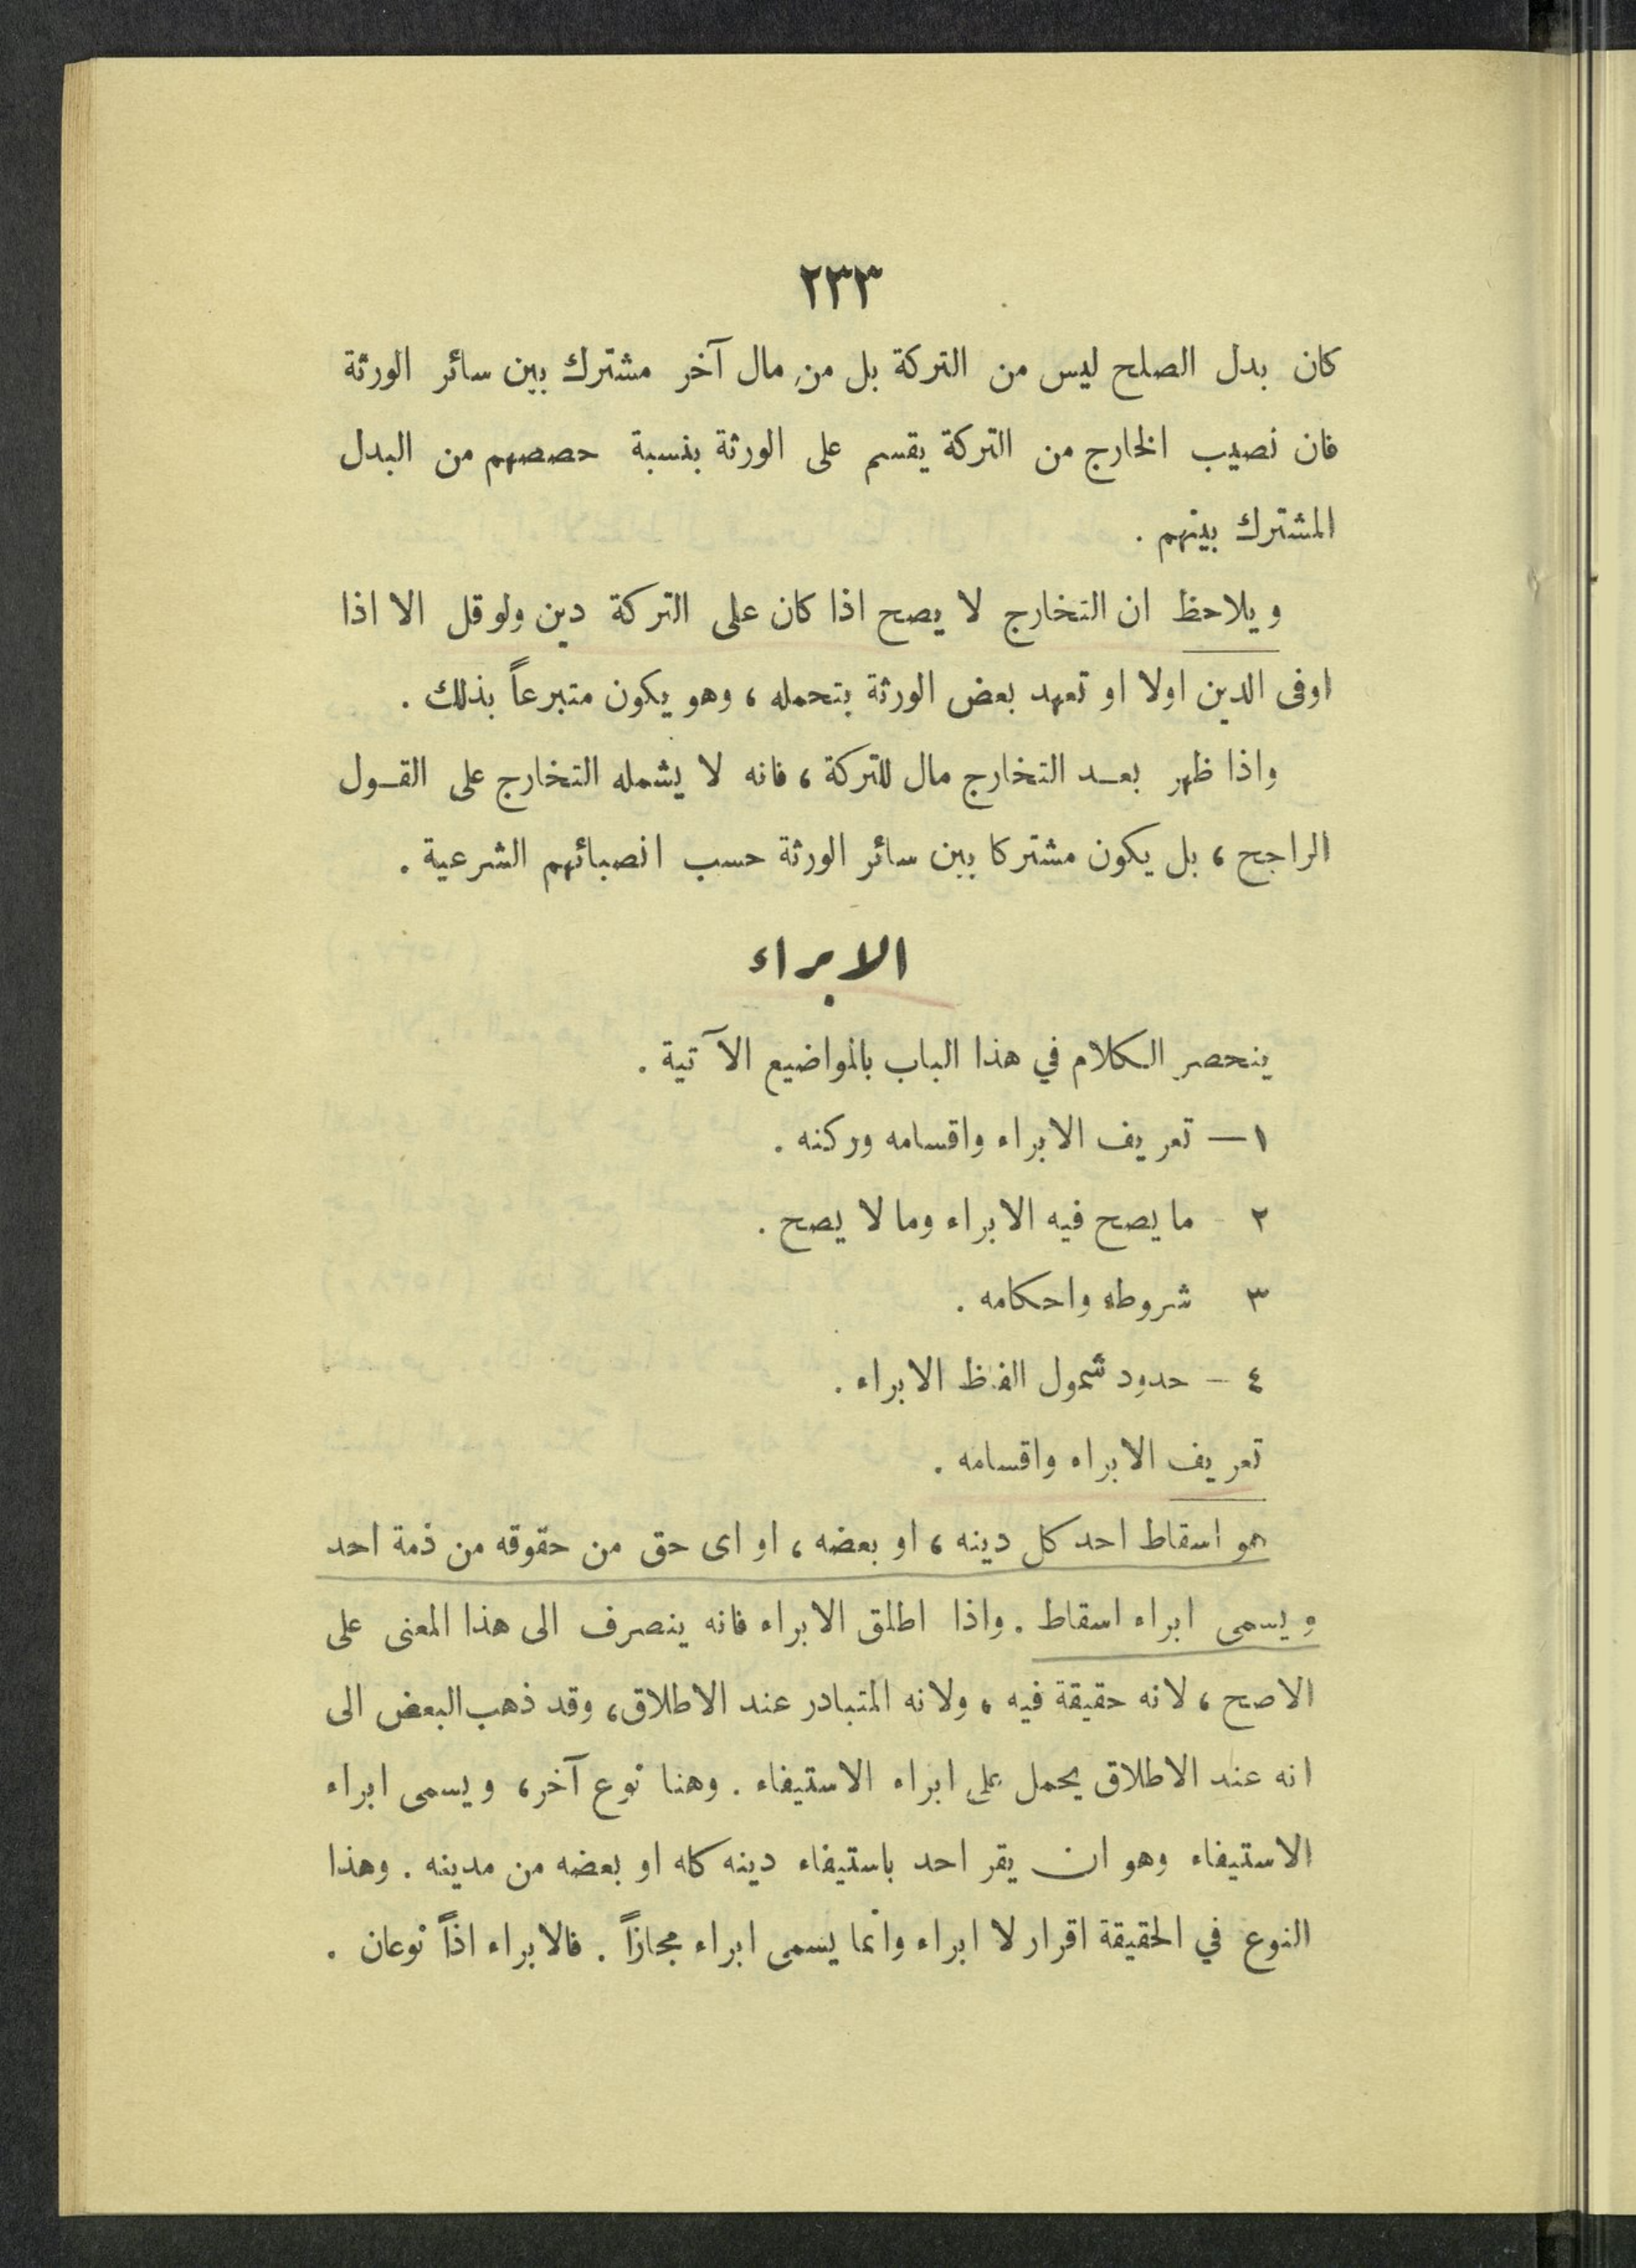 ٢٣٣
كان بدل الصلح ليس من التركة بل من مال آخر مشترك بين سائر الورثة
فان نصيب الخارج من التركة يقسم على الورثة بنسبة حصصهم من البدل
المشترك بينهم .
ويلاحظ ان التخارج لا يصح اذا كان على التركة دين ولو قل الا اذا
اوفى الدين اولا او تعهد بعض الورثة بتحمله ، وهو يكون متبرعاً بذلك .
واذا ظهر بعد التخارج مال للتركة ، فانه لا يشمله التخارج على القول
الراجح ، بل يكون مشتركا بين سائر الورثة حسب انصبائهم الشرعية .
الابراء
ينحصر الكلام في هذا الباب بالمواضيع الآتية .
١ — تعريف الابراء واقسامه وركنه .
٢ - ما يصح فيه الابراء وما لا يصح .
٣ شروطه واحكامه .
٤ - حدود شمول الفاظ الابراء .
تعريف الابراء واقسامه .
هو اسقاط احد كل دينه ، او بعضه ، او اى حق من حقوقه من ذمة احد
ويسمى ابراء اسقاط . واذا اطلق الابراء فانه ينصرف الى هذا المعنى على
الاصح ، لانه حقيقة فيه ، ولانه المتبادر عند الاطلاق ، وقد ذهب البعض الى
انه عند الاطلاق يحمل على ابراء الاستيفاء . وهنا نوع آخر ، ويسمى ابراء
الاستيفاء وهو ان يقر احد باستيفاء دينه كله او بعضه من مدينه . وهذا
النوع في الحقيقة اقرار لا ابراء وانما يسمى ابراء مجازاً . فالابراء اذاً نوعان .